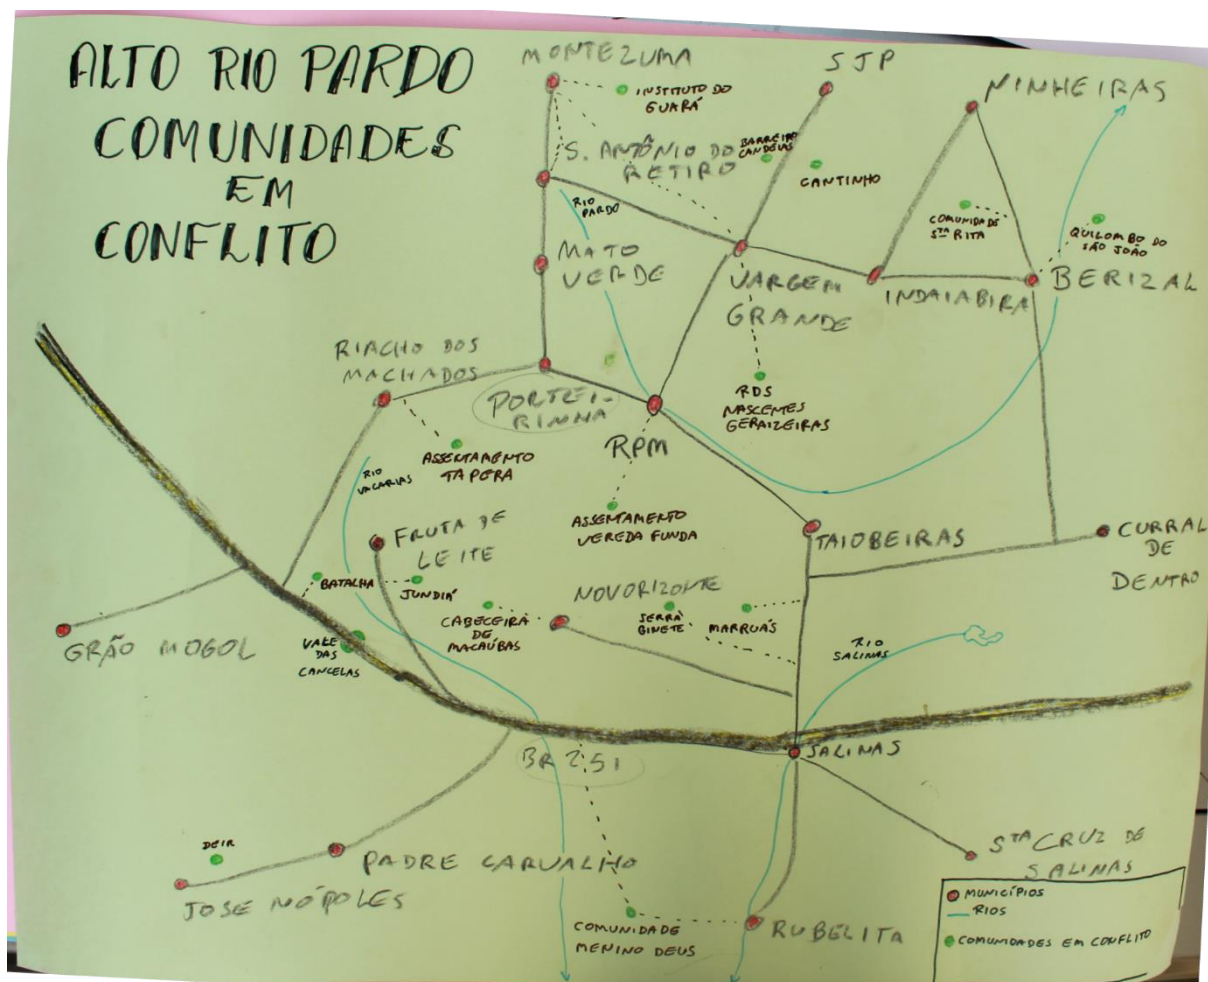 ALTO RIO PARDO
COMUNIDADES
EM
CONFLITO
MONTEZUMA
INSTITUTO DO
GUARÁ
SJP
NINHEIRAS
S. ANTÔNIO DO
RETIRO
BARREIRO
CANDEIAS
CANTINHO
RIO
PARDO
COMUNIDADE
STA RITA
QUILOMBO DO
SÃO JOÃO
MATO
VERDE
VARGEM
GRANDE
INDAIABIRA
BERIZAL
RIACHO DOS
MACHADOS
PORTEI-
RINHA
RDS
NASCENTES
GERAIZEIRAS
RPM
ASSENTAMENTO
TAPERA
RIO
VACARIAS
ASSENTAMENTO
VEREDA FUNDA
FRUTA DE
LEITE
TAIOBEIRAS
CURRAL
DE
DENTRO
BATALHA
JUNDIÁ
NOVORIZONTE
CABECEIRA
DE
MACAÚBAS
SERRA
GINETE
MARRUÁS
GRÃO MOGOL
VALE
DAS
CANCELAS
RIO
SALINAS
BR 251
SALINAS
DEIR
PADRE CARVALHO
STA CRUZ DE
SALINAS
JOSE NÓPOLES
COMUNIDADE
MENINO DEUS
RUBELITA
MUNICÍPIOS
RIOS
COMUNIDADES EM CONFLITO